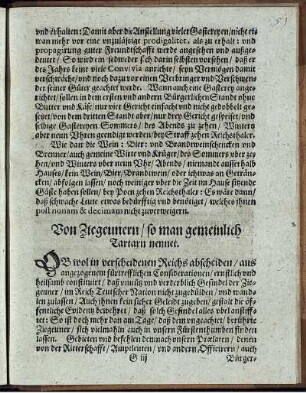 und erhalten: Damit aber die Anstellung vieler Gastereyen / nicht et-
wan mehr vor eine unzulässige prodigalitet, als zu erhalt: und
propagirung guter Freundschafft werde angesehen und außge-
deutet / So wird ein jedweder sich darin selbsten vorsehen / daß er
des Jahrs keine viele Convivia anrichte / seyn Vermögen damit
verschwäche / und noch dazu vor einen Verbringer und Verschwen-
der seiner Güter geachtet werde. Wann auch eine Gasterey ange-
richtet / sollen in dem ersten und andern Bürgerlichen Stande ohne
Butter und Käse / nur vier Gericht einfach und nicht gedobbelt ge-
speiset / von dem dritten Stande aber / nur drey Gericht gespeiset / und
selbige Gastereyen Sommers / des Abends zu zehen / Winters
aber neun Uhren geendiget werden / bey Straff zehen Reichsthaler.
Wie dan die Wein: Bier: und Brandeweinschencken und
Brewner / auch gemeine Wirte und Krüger / des Sommers uber ze-
hen / und Winters uber neun Uhr / Abends / niemande ausserhalb
Hauses / kein Wein / Bier / Brandewein / oder ichtwas an Geträn-
cken / abfolgen lassen / noch weiniger uber die Zeit im Hause sitzende
Gäste haben sollen / bey Poen zehen Reichsthaler: Es wäre dann /
daß schwache Leute etwas bedürfftig und benötiget / welches ihnen
post nonam & decimam nicht zuverweigern.
Von Ziegeunern / so man gemeinlich
Tartarn nennet.
OB wol in verscheidenen Reichs abscheiden / aus
angezogenem fürtrefflichen Considerationen / ernstlich und
heilsamb constituiret / daß unnütz und verderblich Gesindel der Zie-
geuner / im Reich Teutscher Nation nicht zugedülden / und wand-
len zulassen / Auch ihnen kein sicher Geleide zugeben / gestalt die öf-
fentliche Evidentz bewehret / daß solch Gesindel alles ubel anstiff-
tet: So ist doch mehr dan am Tage / daß dem ungeachtet / berührte
Ziegeuner / sich vielmahln auch in unsern Fürstenthumben finden
lassen. Gebieten und befehlen demnach unsern Prælaten / denen
von der Ritterschafft / Amptleuten / und andern Officirern / auch
G iij
Bürger-